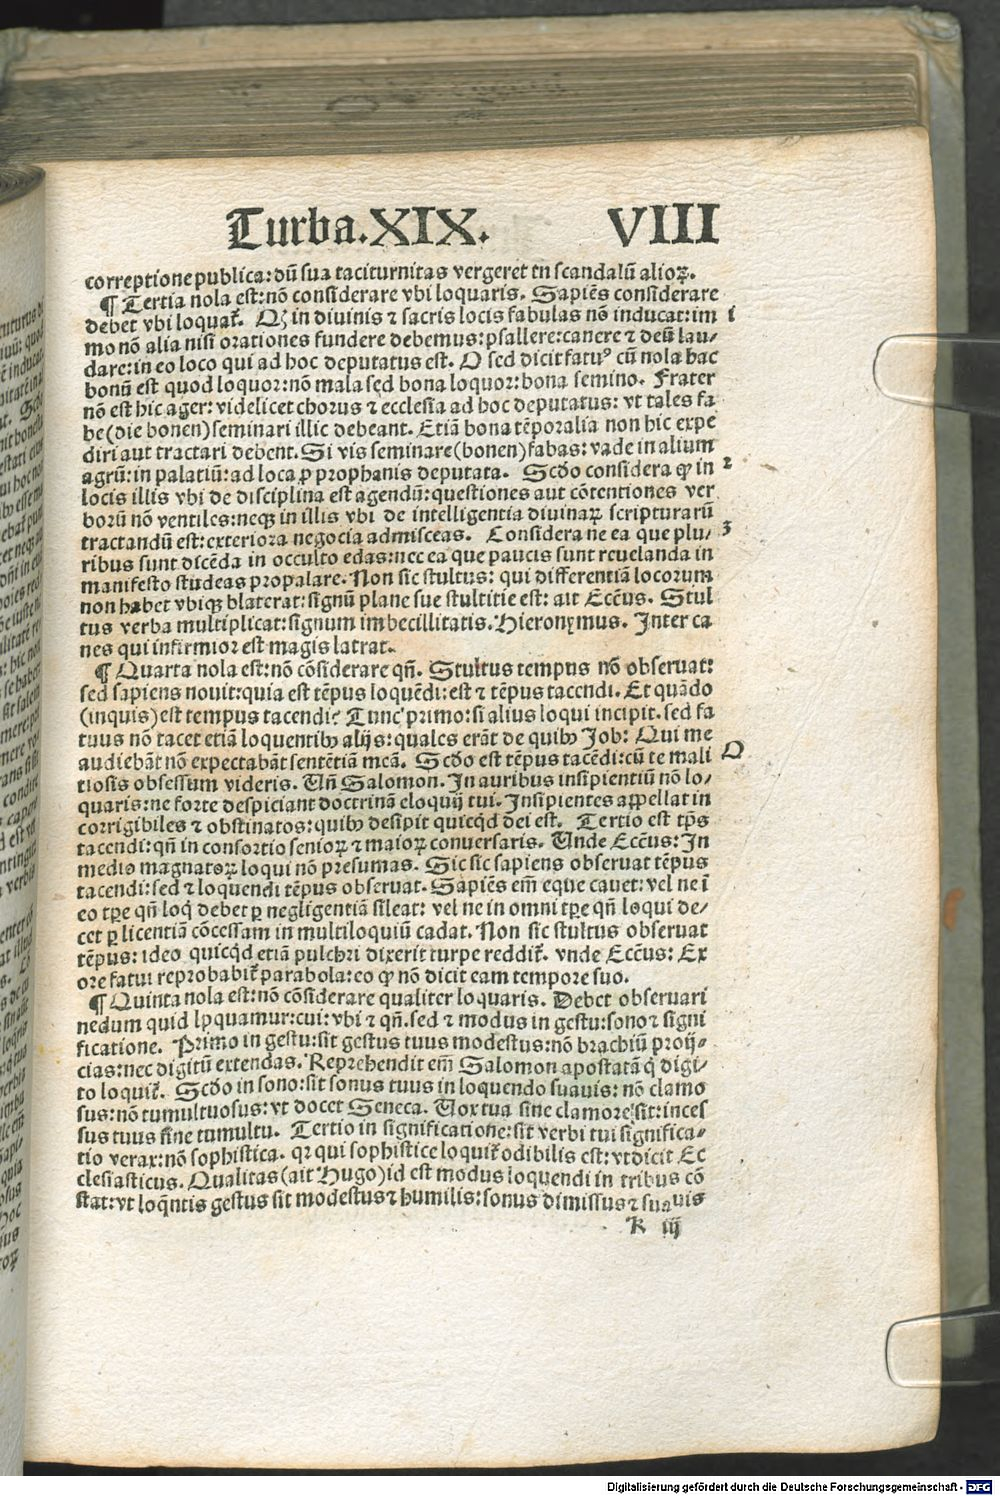 Turba.XIX. VIII
correptione publica: dū sua taciturnitas vergeret in scandalū alioꝝ.
¶ Tertia nola est: nō considerare vbi loquaris. Sapiēs considerare
debet vbi loquat̄. Qꝫ in diuinis ⁊ sacris locis fabulas nō inducat: im 1
mo nō alia nisi orationes fundere debemus: psallere: canere ⁊ deū lau⸗
dare: in eo loco qui ad hoc deputatus est. O sed dicit fatuꝰ cū nola hac
bonū est quod loquor: nō mala sed bona loquor: bona semino. Frater
nō est hic ager: videlicet chorus ⁊ ecclesia ad hoc deputatus: vt tales fa
be (die bonen) seminari illic debeant. Etiā bona tēporalia non hic expe
diri aut tractari debent. Si vis seminare (bonen) fabas: vade in alium
agrū: in palatiū: ad loca ꝓ prophanis deputata. Scdo considera ꝙ in 2
locis illis vbi de disciplina est agendū: questiones aut cōtentiones ver
borū nō ventiles: neqꝫ in illis vbi de intelligentia diuinaꝝ scripturarū
tractandū est: exteriora negocia admisceas. Considera ne ea que plu⸗ 3
ribus sunt dicēda in occulto edas: nec ea que paucis sunt reuelanda in
manifesto studeas propalare. Non sic stultus: qui differentiā locorum
non habet vbiqꝫ blaterat: signū plane sue stultitie est: ait Eccūs. Stul
tus verba multiplicat: signum imbecillitatis. Hieronymus. Inter ca
nes qui infirmior est magis latrat.
¶ Quarta nola est: nō cōsiderare qn̄. Stultus tempus nō obseruat:
sed sapiens nouit: quia est tēpus loquēdi: est ⁊ tēpus tacendi. Et quādo
(inquis) est tempus tacendi? Tunc primo: si alius loqui incipit. sed fa
tuus nō tacet etiā loquentibꝰ alijs: quales erāt de quibꝰ Job: Qui me
audiebāt nō expectabāt sententiā meā. Scdo est tēpus tacēdi: cū te mali O
tiosis obsessum videris. Vn̄ Salomon. In auribus insipientiū nō lo⸗
quaris: ne forte despiciant doctrinā eloquij tui. Insipientes appellat in
corrigibiles ⁊ obstinatos: quibꝰ desipit quicq̄d dei est. Tertio est tp̄s
tacendi: qn̄ in consortio senioꝝ ⁊ maioꝝ conuersaris. Vnde Eccūs: In
medio magnatoꝝ loqui nō presumas. Sic sic sapiens obseruat tēpus
tacendi: sed ⁊ loquendi tēpus obseruat. Sapiēs em̄ eque cauet: vel ne ī
eo tp̄e qn̄ loq̄ debet ꝑ negligentiā sileat: vel ne in omni tp̄e qn̄ loqui de⸗
cet ꝑ licentiā cōcessam in multiloquiū cadat. Non sic stultus obseruat
tēpus: ideo quicq̄d etiā pulchri dixerit turpe reddit̄. vnde Eccūs: Ex
ore fatui reprobabit̄ parabola: eo ꝙ nō dicit eam tempore suo.
¶ Quinta nola est: nō cōsiderare qualiter loquaris. Debet obseruari
nedum quid loquamur: cui: vbi ⁊ qn̄. sed ⁊ modus in gestu: sono ⁊ signi
ficatione. Primo in gestu: sit gestus tuus modestus: nō brachiū proij⸗
cias: nec digitū extendas. Reprehendit em̄ Salomon apostatā q̄ digi⸗
to loquit̄. Scdo in sono: sit sonus tuus in loquendo suauis: nō clamo
sus: nō tumultuosus: vt docet Seneca. Vox tua sine clamore sit: inces
sus tuus sine tumultu. Tertio in significatione: sit verbi tui significa⸗
tio verax: nō sophistica. qꝛ qui sophistice loquit̄ odibilis est: vt dicit Ec
clesiasticus. Qualitas (ait Hugo) id est modus loquendi in tribus cō
stat: vt loq̄ntis gestus sit modestus ⁊ humilis: sonus dimissus ⁊ suauis
K iij
Digitalisierung gefördert durch die Deutsche Forschungsgemeinschaft - DFG